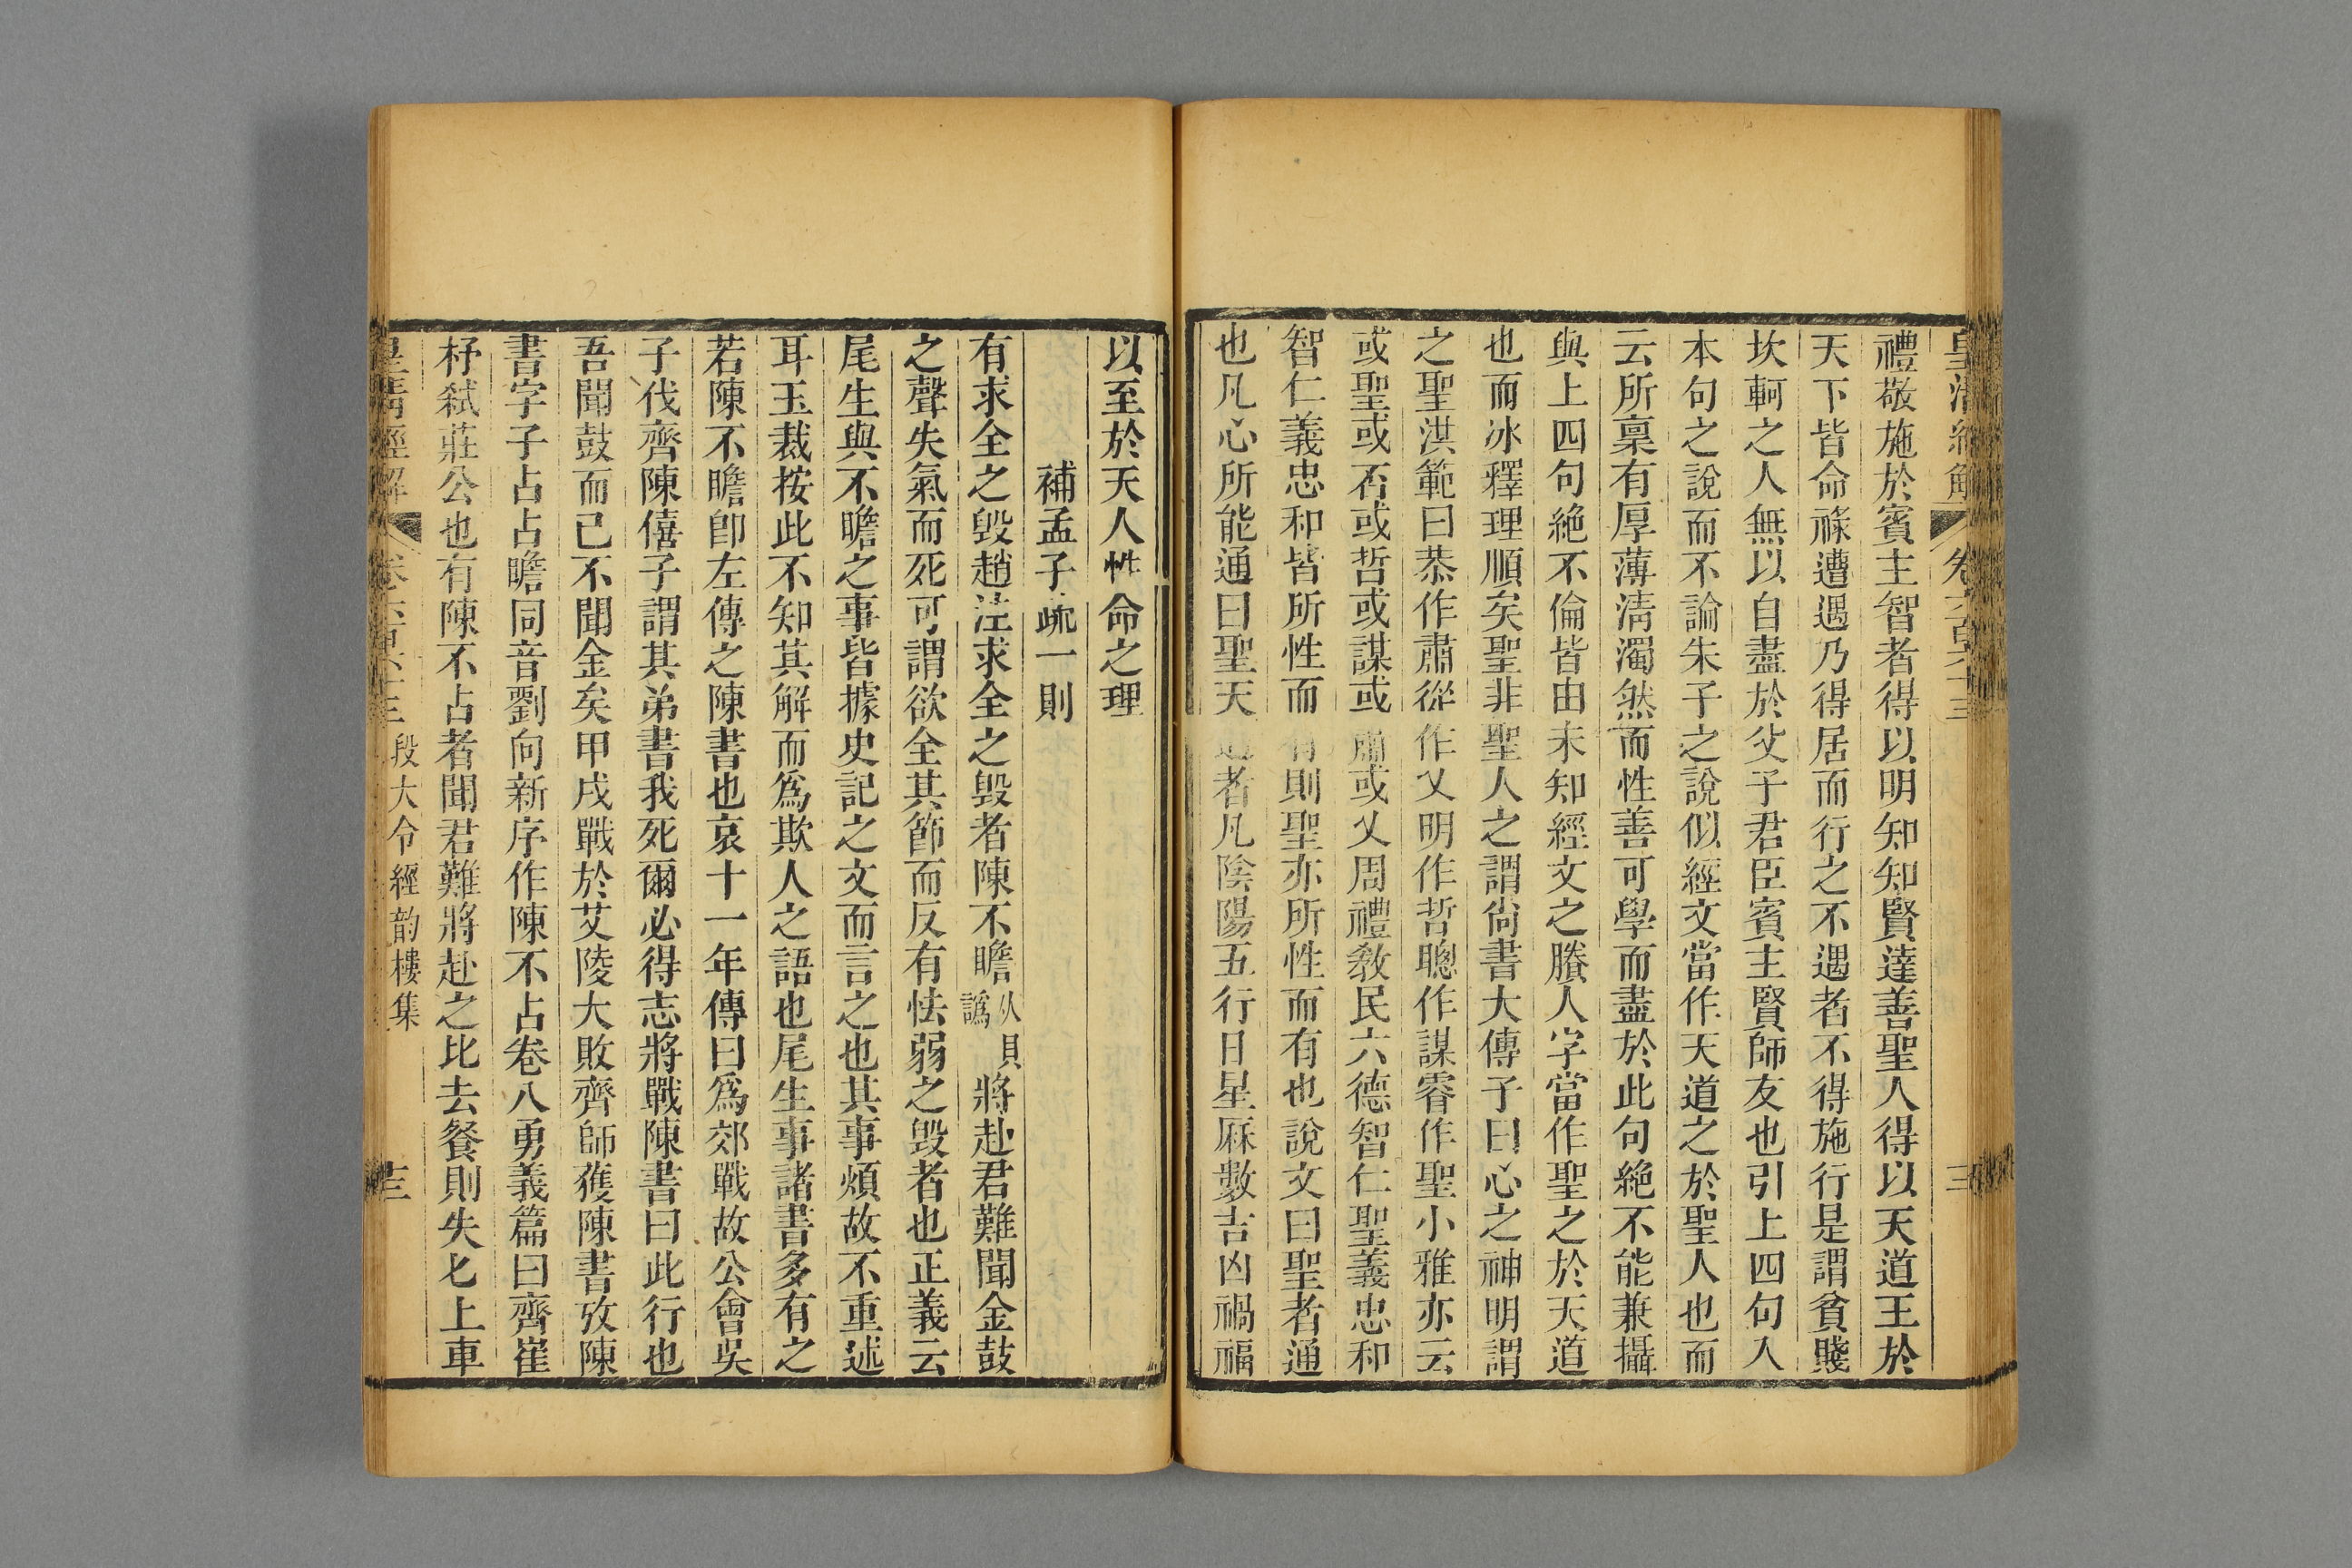 皇清經解 卷六百六十三 三
禮敬施於賓主智者得以明知知賢達善聖人得以天道王於
天下皆命祿遭遇乃得居而行之不遇者不得施行是謂貧賤
坎軻之人無以自盡於父子君臣賓主賢師友也引上四句入
本句之說而不論朱子之說似經文當作天道之於聖人也而
云所稟有厚薄淸濁然而性善可學而盡於此句絶不能兼攝
與上四句絶不倫皆由未知經文之賸人字當作聖之於天道
也而冰釋理順矣聖非聖人之謂尙書大傳子曰心之神明謂
之聖洪範曰恭作肅從作乂明作哲聰作謀睿作聖小雅亦云
或聖或否或哲或謀或肅或乂周禮敎民六德智仁聖義忠和
智仁義忠和皆所性而有則聖亦所性而有也說文曰聖者通
也凡心所能通曰聖天道者凡陰陽五行日星厤數吉凶禍福
以至於天人性命之理
補孟子疏一則
有求全之毀趙注求全之毀者陳不瞻譌將赴君難聞金鼓
之聲失氣而死可謂欲全其節而反有怯弱之毀者也正義云
尾生與不瞻之事皆據史記之文而言之也其事煩故不重述
耳玉裁按此不知其解而爲欺人之語也尾生事諸書多有之
若陳不瞻卽左傳之陳書也哀十一年傳曰爲郊戰故公會吳
子伐齊陳僖子謂其弟書我死爾必得志將戰陳書曰此行也
吾聞鼓而已不聞金矣甲戌戰於艾陵大敗齊師獲陳書攷陳
書字子占占瞻同音劉向新序作陳不占卷八勇義篇曰齊崔
杼弑莊公也有陳不占者聞君難將赴之比去餐則失匕上車
皇清經解 卷六百六十三 段大令經韵樓集 三